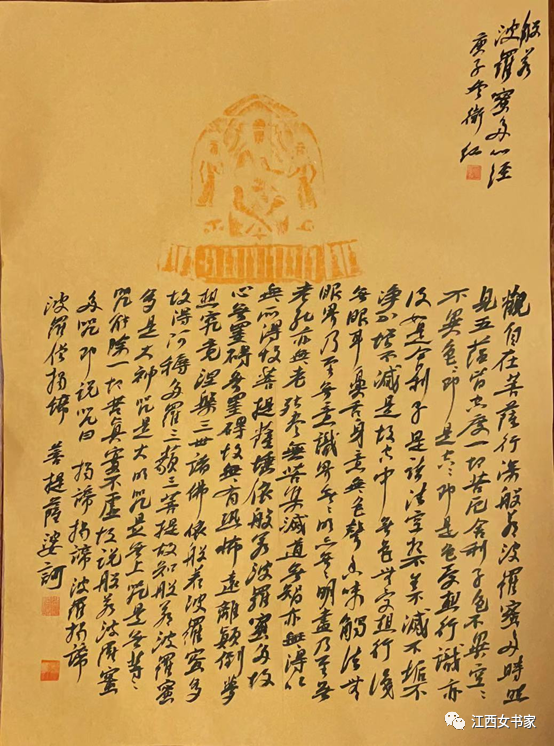 般若
波羅蜜多心经
庚子冬衛红
觀自在菩薩行深般若波羅蜜多時照
見五蘊皆空度一切苦厄舍利子色不異空々
不異色々即是空々即是色受想行識亦
復如是舍利子是諸法空相不生不滅不垢不
淨不增不減是故空中無色無受想行識
無眼耳鼻舌身意無色聲香味觸法無
眼界乃至無意識界無無明盡乃至無
老死亦無老死盡無苦集滅道無智亦無得以
無所得故菩提薩埵依般若波羅蜜多故
心無罣礙無罣礙故無有恐怖遠離顛倒夢
想究竟涅槃三世諸佛依般若波羅蜜多
故得阿耨多羅三藐三菩提故知般若波羅蜜
多是大神咒是大明咒是無上咒是無等々
咒能除一切苦真實不虛故說般若波羅蜜
多咒即說咒曰 揭諦揭諦波羅揭諦
波羅僧揭諦 菩提薩婆訶
江西女书家